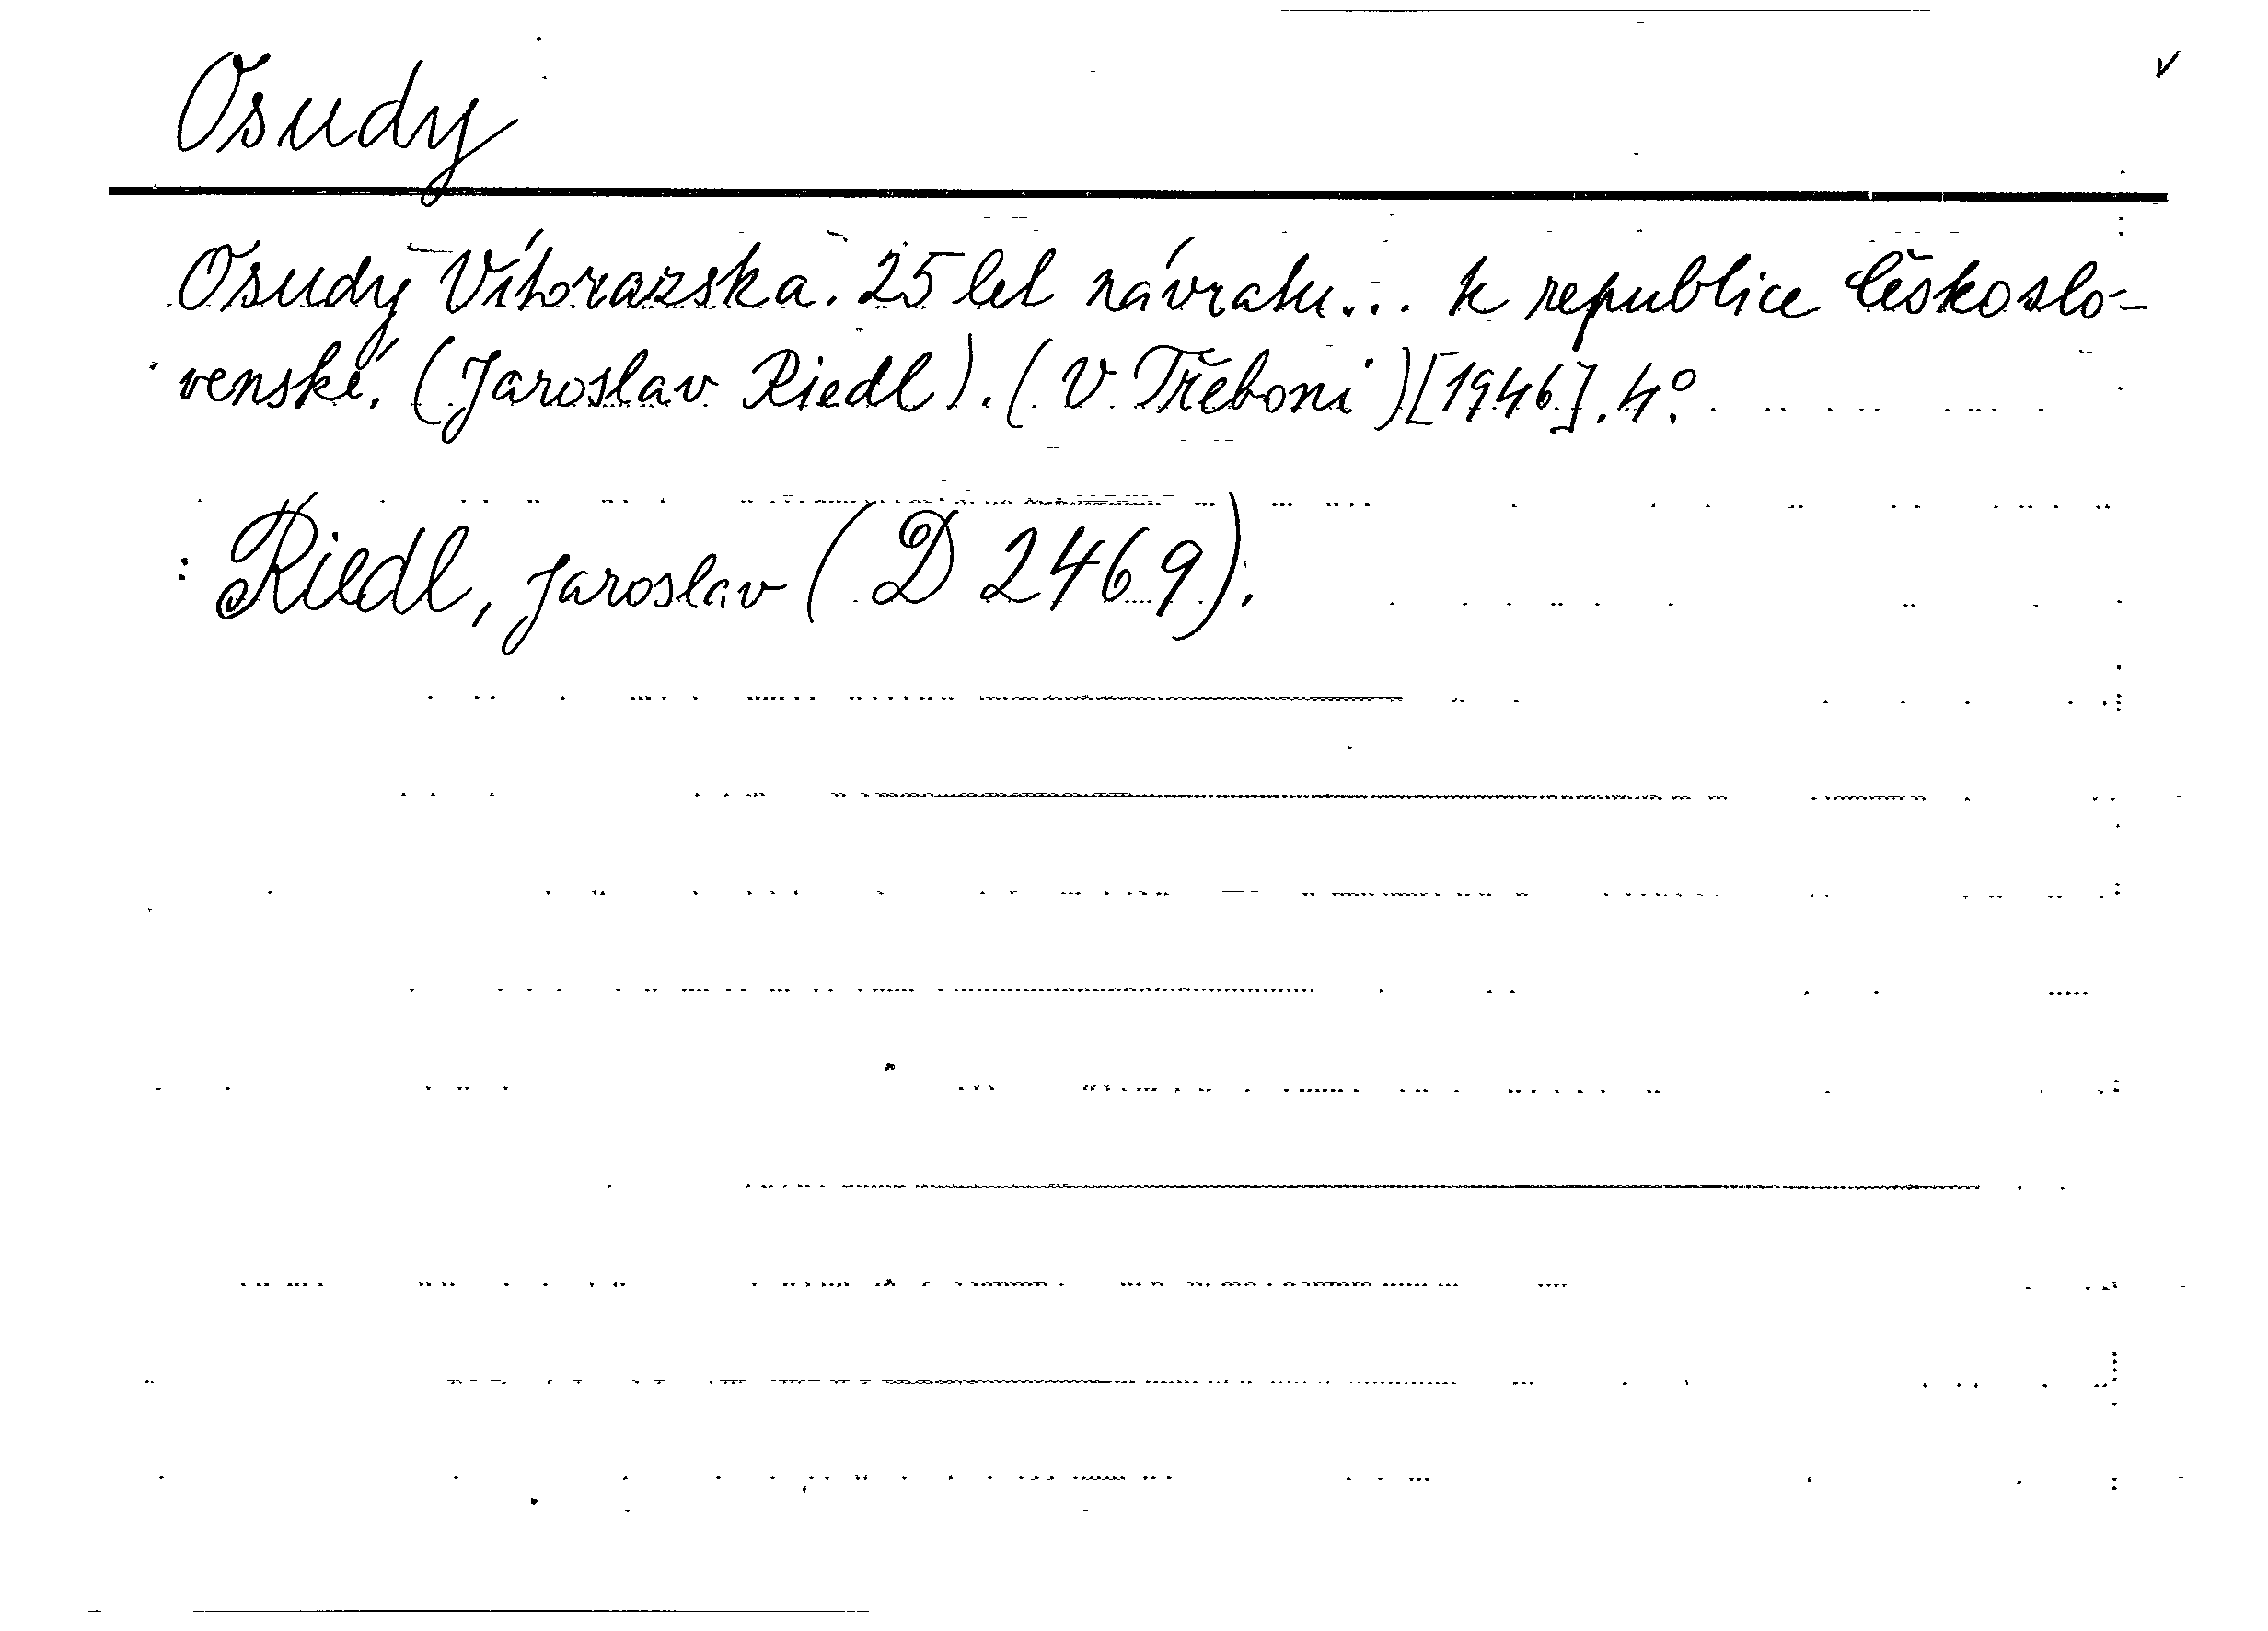 Osudy
Osudy Vitorazska. 25 let návratu... k republice českoslo-
venské. (Jaroslav Riedl). (V Třeboni) [1946]. 4°.
: Riedl, Jaroslav (D 2469).